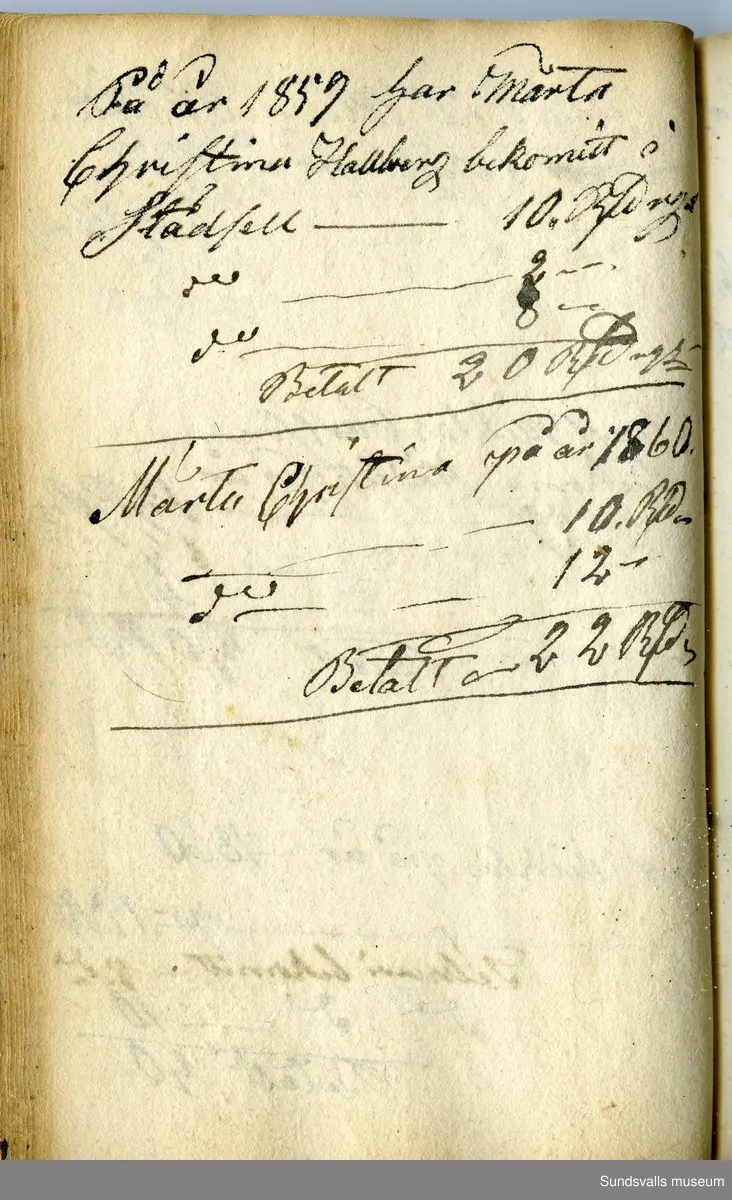 På år 1859 har Märta
Christina Hallberg bekomitt i
Städsell — 10. RD rgs
do — 2 —
do — 8 —
Betalt 20 RD rgs
Märta Christina på år 1860.
— 10. RD
do — 12 —
Betalt 22 RD
Sundsvalls museum